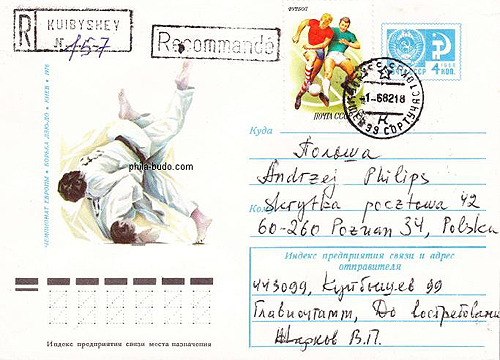 R KUIBYSHEV
№ 157
Recommandé
ФУТБОЛ
ПОЧТА СССР
4 КОП.
-1-68218
К
ЧЕМПИОНАТ ЕВРОПЫ • БОРЬБА ДЗЮ-ДО • КИЕВ • 1976
phila-budo.com
Куда
Польша
Andrzej Philips
Skrytka pocztowa 42
60-260 Poznań 34, Polska
Индекс предприятия связи и адрес
отправителя
443099, Куйбышев 99
Главпочтамт, До востребования
Шарков В.П.
Индекс предприятия связи места назначения